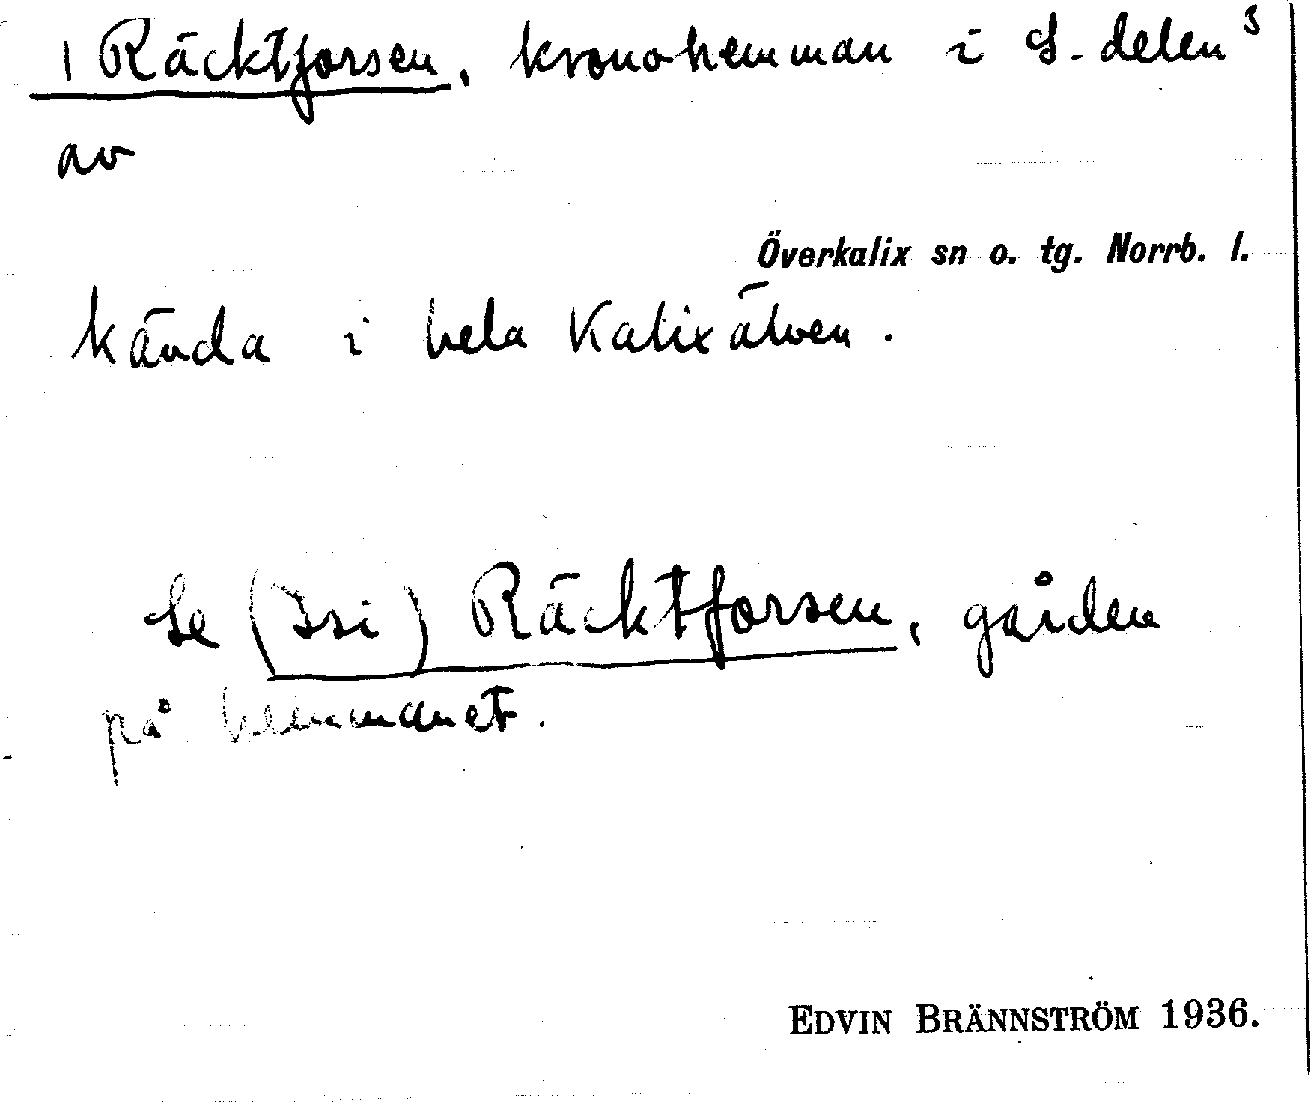 1 Räcktforsen, kronohemman i S. delen 3
av
Överkalix sn o. tg. Norrb. l.
kända i hela Kalixälven.
Se (Isi) Räcktforsen, gården
på hemmanet.
EDVIN BRÄNNSTRÖM 1936.